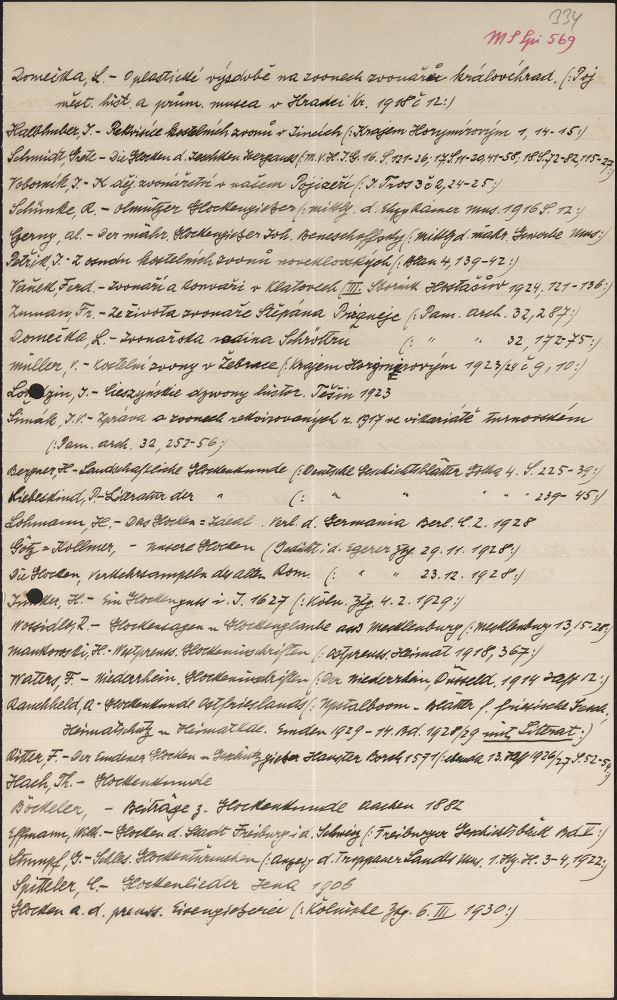 334
MS Spi 569
Domečka, L. - O plastické výzdobě na zvonech zvonařů královéhrad. (: Poj
měst. hist. a prům. musea v Hradci Kr. 1918 č 12:)
Halbhuber, J. - Rekvisice kostelních zvonů v Jincích (: Krajem Horymírovým 1, 14-15:)
Schmidt, Grete - Die Glocken d. Jeschken Isergaues (: M. V. H. I. G. 16. S. 121-26; 17. S. 11-20, 41-58, 18 S. 72-82, 115-27:)
Voborník, J. - K děj. zvonařství v našem Pojizeří (: J. Tros 3 č 2, 24-25:)
Schünke, R. - Olmützer Glockengießer (: Mittlg. d. Mus. 1916 S. 12:)
Czerny, Al. - Der mähr. Glockengießer Joh. (: Mittlg d. mähr. Gewerbe Mus:)
Petřík, J. - Z osudu kostelních zvonů noveklovských (: Alau 4, 139-42:)
Vaněk, Ferd. - Zvonaři a konvaři v Klatovech (: III. Sborník Hostašův 1924, 121-136:)
Zuman, Fr. - Ze života zvonaře Štěpána Pirgneje (: Pam. arch. 32, 287:)
Domečka, L. - Zvonařská rodina Schröttrů (: " " 32, 172-75:)
Müller, V. - Kostelní zvony v Žebrace (: Krajem Horymírovým 1923/24 č 9, 10:)
Londzin, J. - Cieszyńskie dzwony histor. Těšín 1923
Šimák, J. V. - Zpráva o zvonech rekvirovaných r. 1917 ve vikariátě turnovském
(: Pam. arch. 32, 252-56:)
Bergner, H. - Landschaftliche Glockenkunde (: Deutsche Geschichtsblätter Gotha 4. S. 225-39:)
Liebeskind, P. - Literatur der " (: " " " " 239-45:)
Lohmann, H. - Das Glocken = Ideal. Verl. d. Germania Berl. C. 2. 1928
Götz = Kollmer, - Unsere Glocken (Gedicht i. d. Egerer Ztg. 29. 11. 1928:)
Die Glocken, Verkehrsampeln des alten Rom. (: " " 23. 12. 1928:)
Junker, H. - Ein Glockenguss i. J. 1627 (: Köln. Ztg. 4. 2. 1929:)
Wossidlo, R. - Glockensagen u Glockenglaube aus Mecklenburg (: Mecklenburg 13, 15-28:)
Mankowski, H. - Westpreuss. Glockeninschriften (: Ostpreuss. Heimat 1918, 367:)
Waters, F. - Niederrhein. Glockeninschriften (: Der Niederrhein, Düsseld. 1914 Heft 12:)
Rauchheld, A. - Glockenkunde Ostfrieslands (: Upstalboom - Blätter f. friesische Gesch.,
Heimatschutz u Heimatkde. Emden 1929 - 14. Bd. 1928/29 mit Literat:)
Ritter F. - Der Emdener Glocken u Geschützgießer Hanster Borch 1571 (: ebenda 13. Heft 1926/27 S. 52-54:)
Hach, Th. - Glockenkunde
Böckeler, - Beiträge z. Glockenkunde Aachen 1882
Effmann, Wilh. - Glocken d. Stadt Freiburg i. d. Schweiz (: Freiburger Geschichtsblät Bd. V:)
Stumpf, G. - Schles. Glockentürmchen (: Anzeig d. Troppauer Landes Mus. 1. Jhg. H. 3-4, 1922:)
Spitteler, C. - Glockenlieder Jena 1906
Glocken a. d. preuss. Eisengießerei (: Kölnische Ztg. 6. III 1930:)